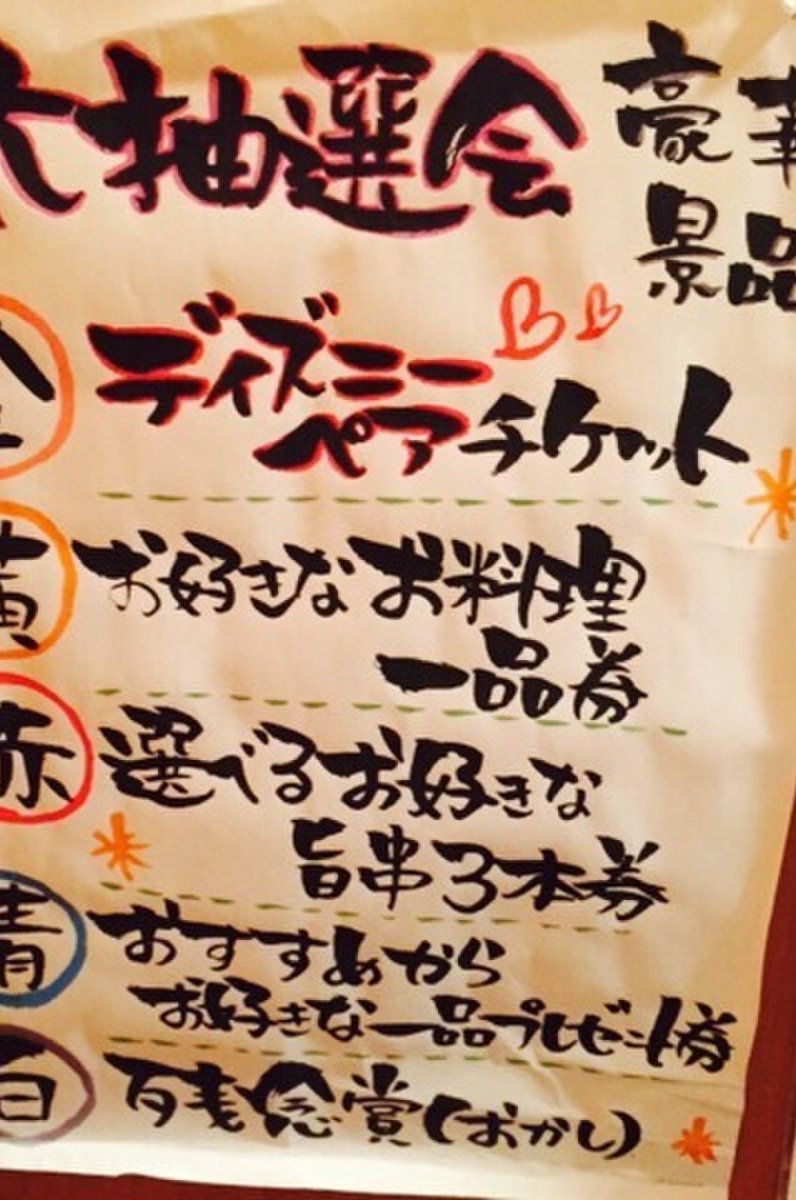 大抽選会
豪華
景品
金
ディズニー
ペアチケット
黄
お好きなお料理
一品券
赤
選べるお好きな
旨串3本券
青
おすすめから
お好きな一品プレゼント券
白
残念賞(おかし)